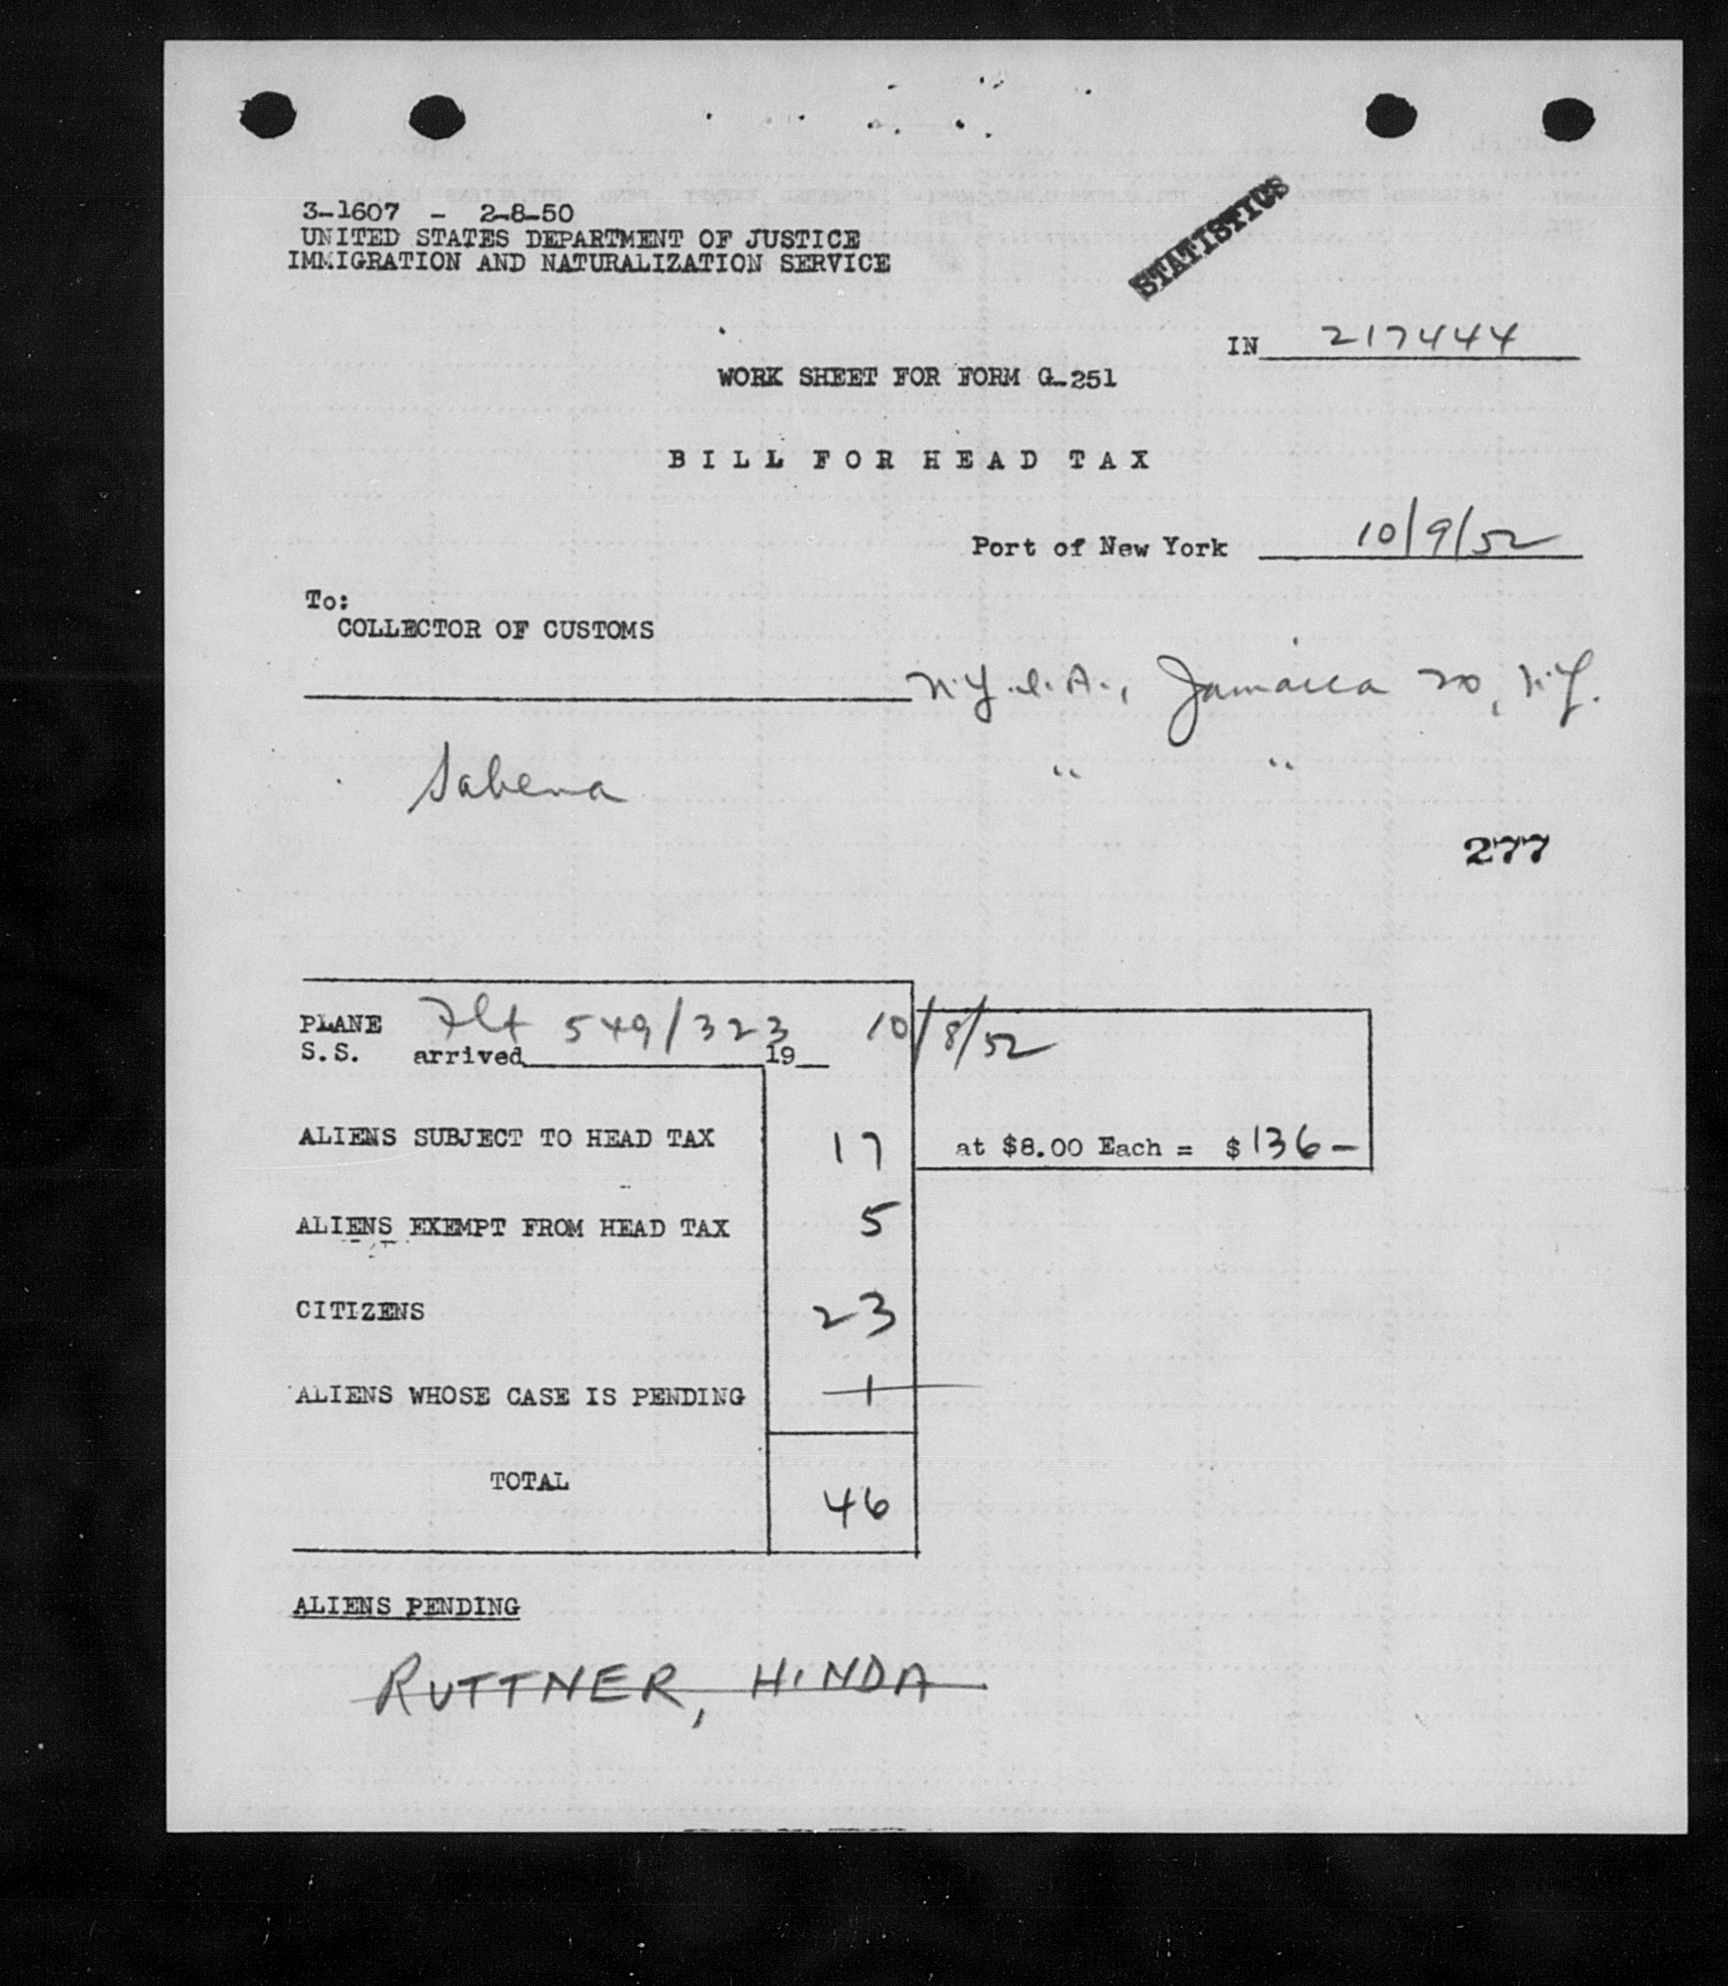 3-1607 - 2-8-50
UNITED STATES DEPARTMENT OF JUSTICE
IMMIGRATION AND NATURALIZATION SERVICE
STATISTICS
IN 217444
WORK SHEET FOR FORM G-251
BILL FOR HEAD TAX
Port of New York 10/9/52
To:
COLLECTOR OF CUSTOMS
N.Y.I.A., Jamaica 20, N.Y.
Sabena " "
277
PLANE Flt 549/323 10/8/52
S.S. arrived 19
ALIENS SUBJECT TO HEAD TAX 17 at $8.00 Each = $136-
ALIENS EXEMPT FROM HEAD TAX 5
CITIZENS 23
ALIENS WHOSE CASE IS PENDING 1
TOTAL 46
ALIENS PENDING
RUTTNER, HINDA